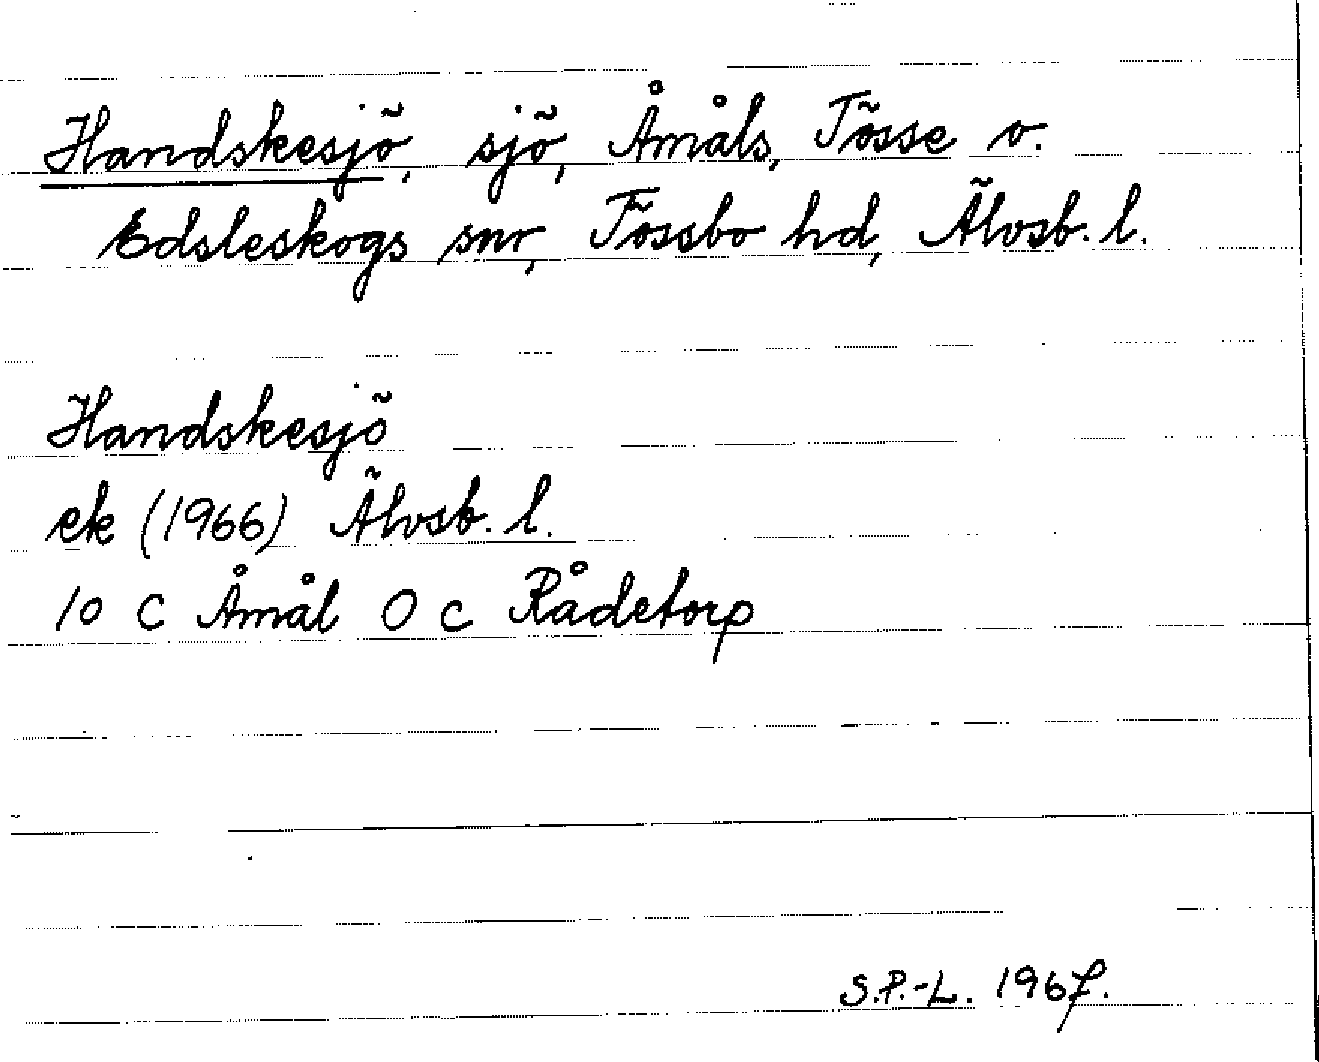 Handskesjö, sjö, Åmåls, Tösse o.
Edsleskogs snr, Tössbo hd, Älvsb. l.
Handskesjö
ek (1966) Älvsb. l.
10 C Åmål O c Rådetorp
S.P.-L. 1967.